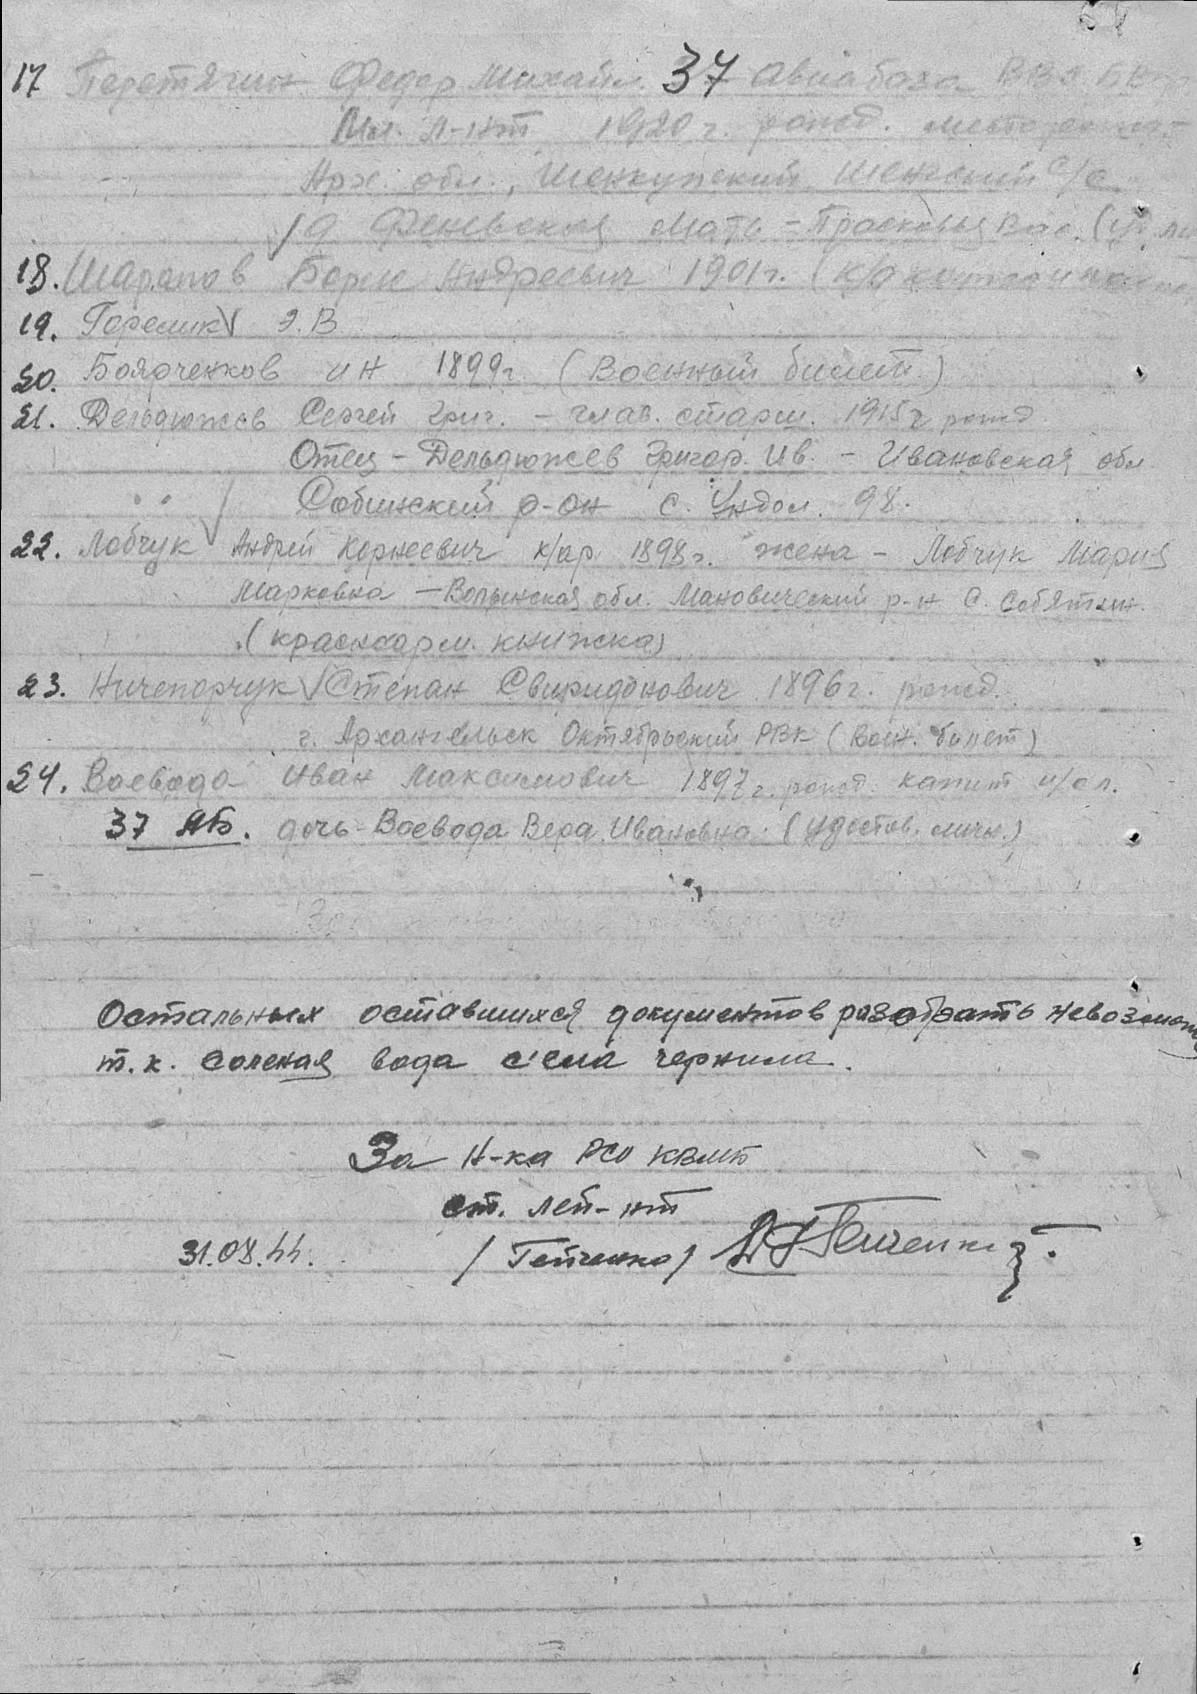 17 Перетягин Федор Михайл. 37 Авиабаза ВВС
Мл. л-нт 1920 г. рожд.
Арх. обл., Шенкурский Шенский с/с
д Феневская Мать - Прасковья Вас.
18. Шарапов Борис Андреевич 1901 г.
19. Горелик Э.В
20. Боярченков ИН 1899 г (Военный билет)
21. Дельдюжов Сергей Григ. - глав. старш. 1915 г рожд
Отец - Дельдюжев Григор. Ив. - Ивановская обл
Собинский р-он с. Ундол. 98.
22. Лобчук Андрей Корнеевич к/ар 1898 г. жена - Лобчук Мария
Марковна - Волынская обл. Мановический р-н С.
(красноарм. книжка)
23. Ничепорчук Степан Свиридонович 1896 г. рожд.
г. Архангельск Октябрьский РВК (Воен. билет)
24. Воевода Иван Максимович 1897 г. рожд. капит
37 АБ. дочь - Воевода Вера Ивановна (Удостов. личн.)
Остальных оставшихся документов разобрать невозможно
т. к. соленая вода съела чернила.
За Н-ка РСО КВМБ
ст. лей-нт
31.08.44. /Гейченко/